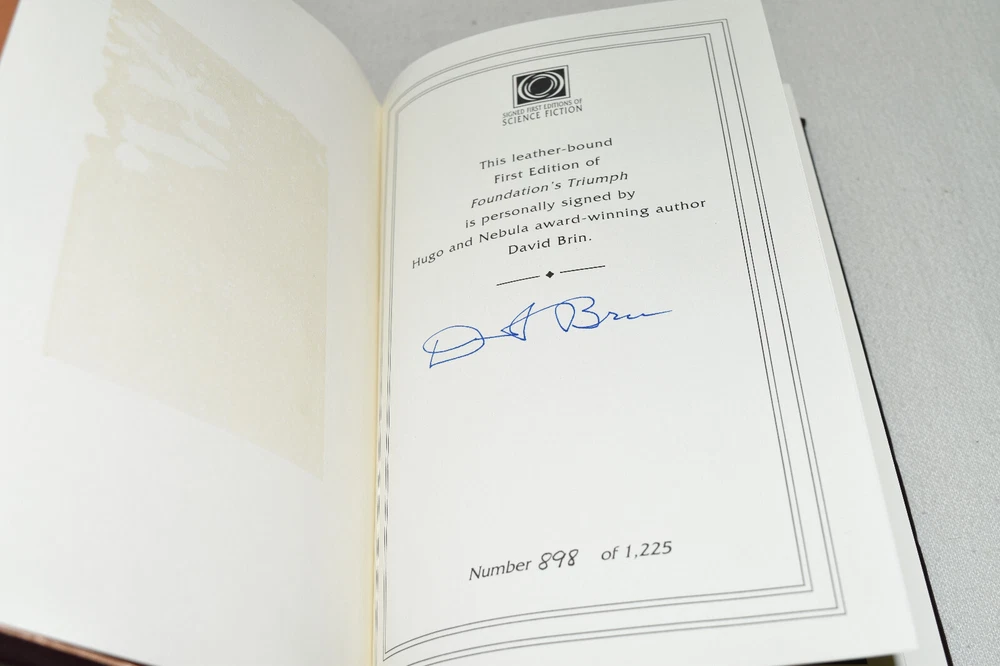 SIGNED FIRST EDITIONS OF
SCIENCE FICTION
This leather-bound
First Edition of
Foundation's Triumph
is personally signed by
Hugo and Nebula award-winning author
David Brin.
David Brin
Number 898 of 1,225